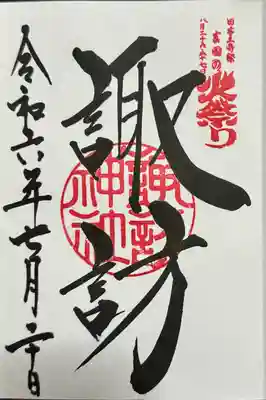 日本三奇祭
富士吉田の火祭り
八月二十六・二十七日
諏訪
諏訪神社
令和六年七月二十日